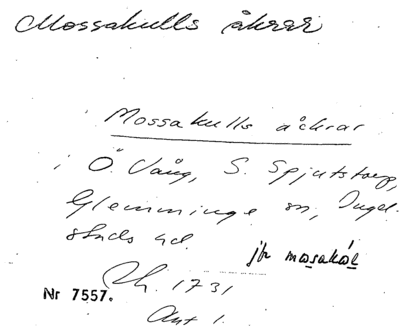 Mossakulls åkrar
Mossakulls åckrar
i Ö. Vång, S. Spjutstorp,
Glemminge sn, Ingel-
stads hd.
jfr mosakúl
Rh. 1731
Nr 7557.
Akt 1.